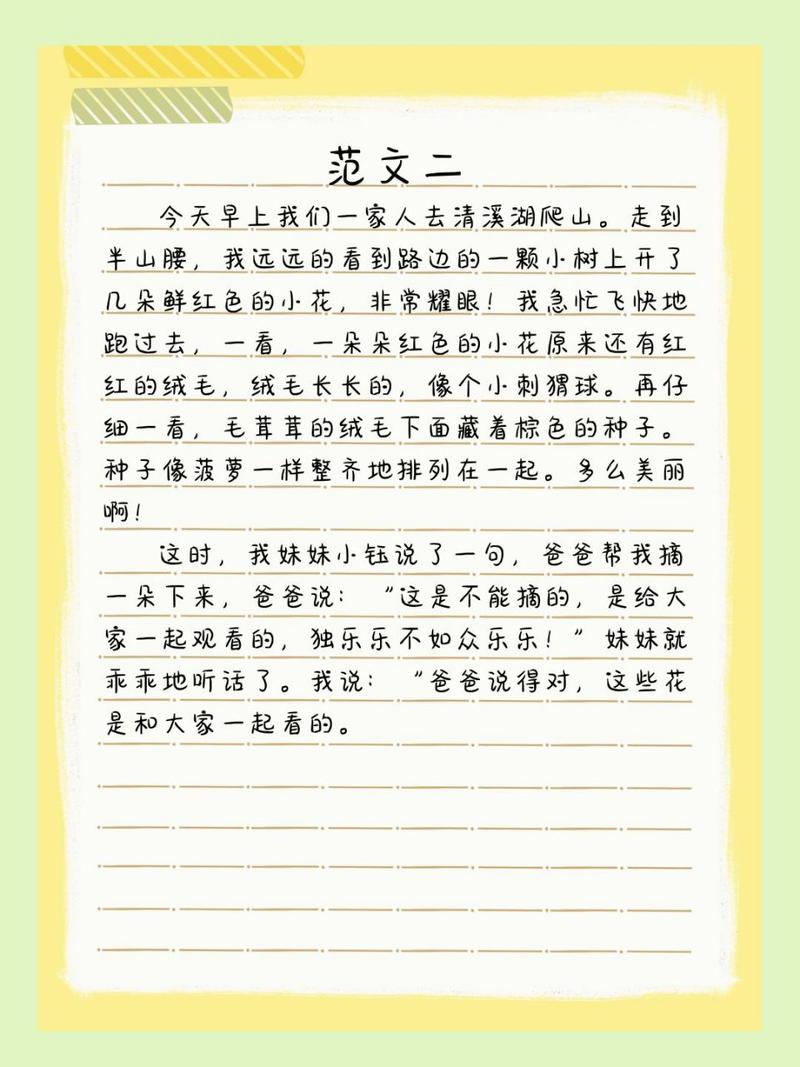 范文二
今天早上我们一家人去清溪湖爬山。走到
半山腰，我远远的看到路边的一颗小树上开了
几朵鲜红色的小花，非常耀眼！我急忙飞快地
跑过去，一看，一朵朵红色的小花原来还有红
红的绒毛，绒毛长长的，像个小刺猬球。再仔
细一看，毛茸茸的绒毛下面藏着棕色的种子。
种子像菠萝一样整齐地排列在一起。多么美丽
啊！
这时，我妹妹小钰说了一句，爸爸帮我摘
一朵下来，爸爸说：“这是不能摘的，是给大
家一起观看的，独乐乐不如众乐乐！”妹妹就
乖乖地听话了。我说：“爸爸说得对，这些花
是和大家一起看的。